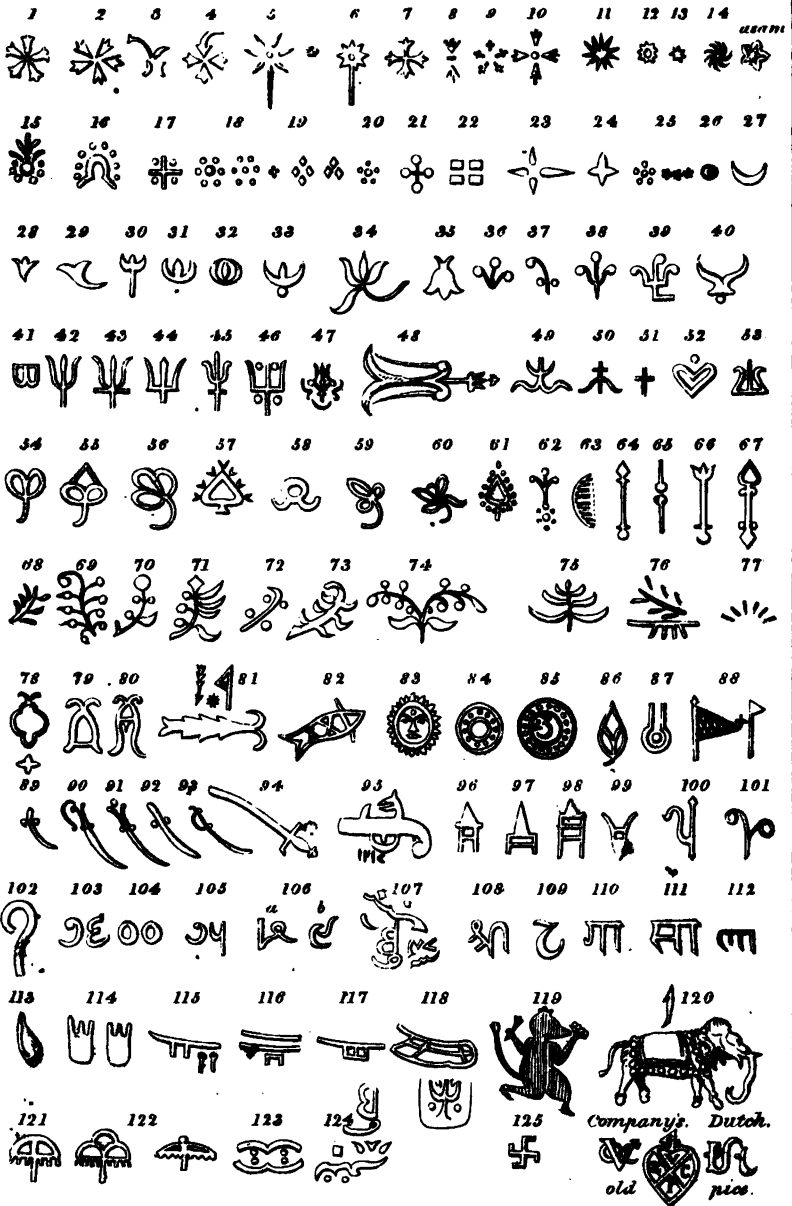 1 2 3 4 5 6 7 8 9 10 11 12 13 14
usam
15 16 17 18 19 20 21 22 23 24 25 26 27
28 29 30 31 32 33 34 35 36 37 38 39 40
41 42 43 44 45 46 47 48 49 50 51 52 53
54 55 56 57 58 59 60 61 62 63 64 65 66 67
68 69 70 71 72 73 74 75 76 77
78 79 80 81 82 83 84 85 86 87 88
89 90 91 92 93 94 95 96 97 98 99 100 101
102 103 104 105 106 107 108 109 110 111 112
a b
श्री ट गा सा
113 114 115 116 117 118 119 120
121 122 123 124 125 Company's. Dutch.
old pice.